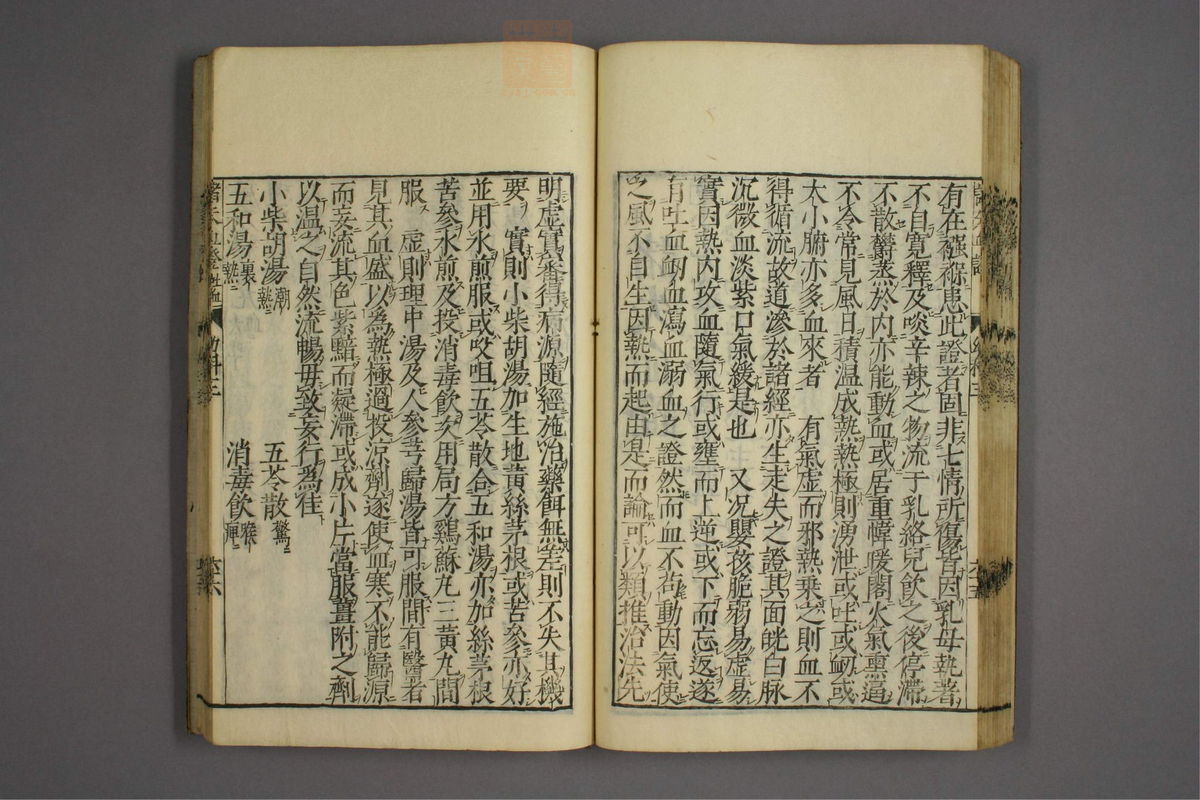 有在襁褓患此證者固非七情所傷皆因乳母執著
不自寬釋及啖辛辣之物流于乳絡兒飲之後停滯
不散欝蒸於内亦能動血或居重幃暖閣火氣熏逼
不令常見風日積温成熱熱極則湧泄或吐或衂或
大小腑亦多血來者　有氣虚而邪熱乗之則血不
得循流故道滲於諸經亦生走失之證其面㿠白脉
沉微血淡紫口氣緩是也　又况嬰孩脆弱易虚易
實因熱内攻血隨氣行或壅而上逆或下而忘返遂
有吐血衂血瀉血溺血之證然而血不茍動因氣使
之風不自生因熱而起由是而論可以類推治法先
明虚實審得病源隨經施治藥餌無差則不失其機
要　實則小柴胡湯加生地黄絲茅根或苦參亦好
並用水煎服或㕮咀五苓散合五和湯亦加絲茅根
苦參水煎及投消毒飲亥用局方鷄蘇丸三黄丸間
服　虚則理中湯及人參芎歸湯皆可服間有醫者
見其血盛以爲熱極過投凉劑遂使血寒不能歸源
而妄流其色紫黯而凝滯或成小片當服薑附之劑
以温之自然流暢毋致妄行爲佳
小柴胡湯潮熱　五苓散驚
五和湯裏熱　消毒飲喉痺